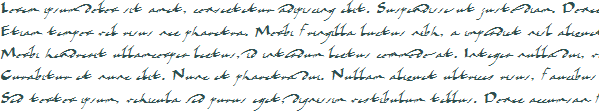 Lorem ipsum dolor sit amet, consectetur adipiscing elit. Suspendisse ut justo diam. Donec
Etiam tempor elit risus nec pharetra. Morbi fringilla luctus nibh, a imperdiet nisl aliquam
Morbi hendrerit ullamcorper lectus, id interdum lectus commodo at. Integer nulla dui,
Curabitur et nunc elit. Nunc et pharetra dui. Nullam aliquet ultrices risus, faucibus
Sed tortor ipsum, vehicula sed purus eget, dignissim vestibulum tellus. Donec accumsan